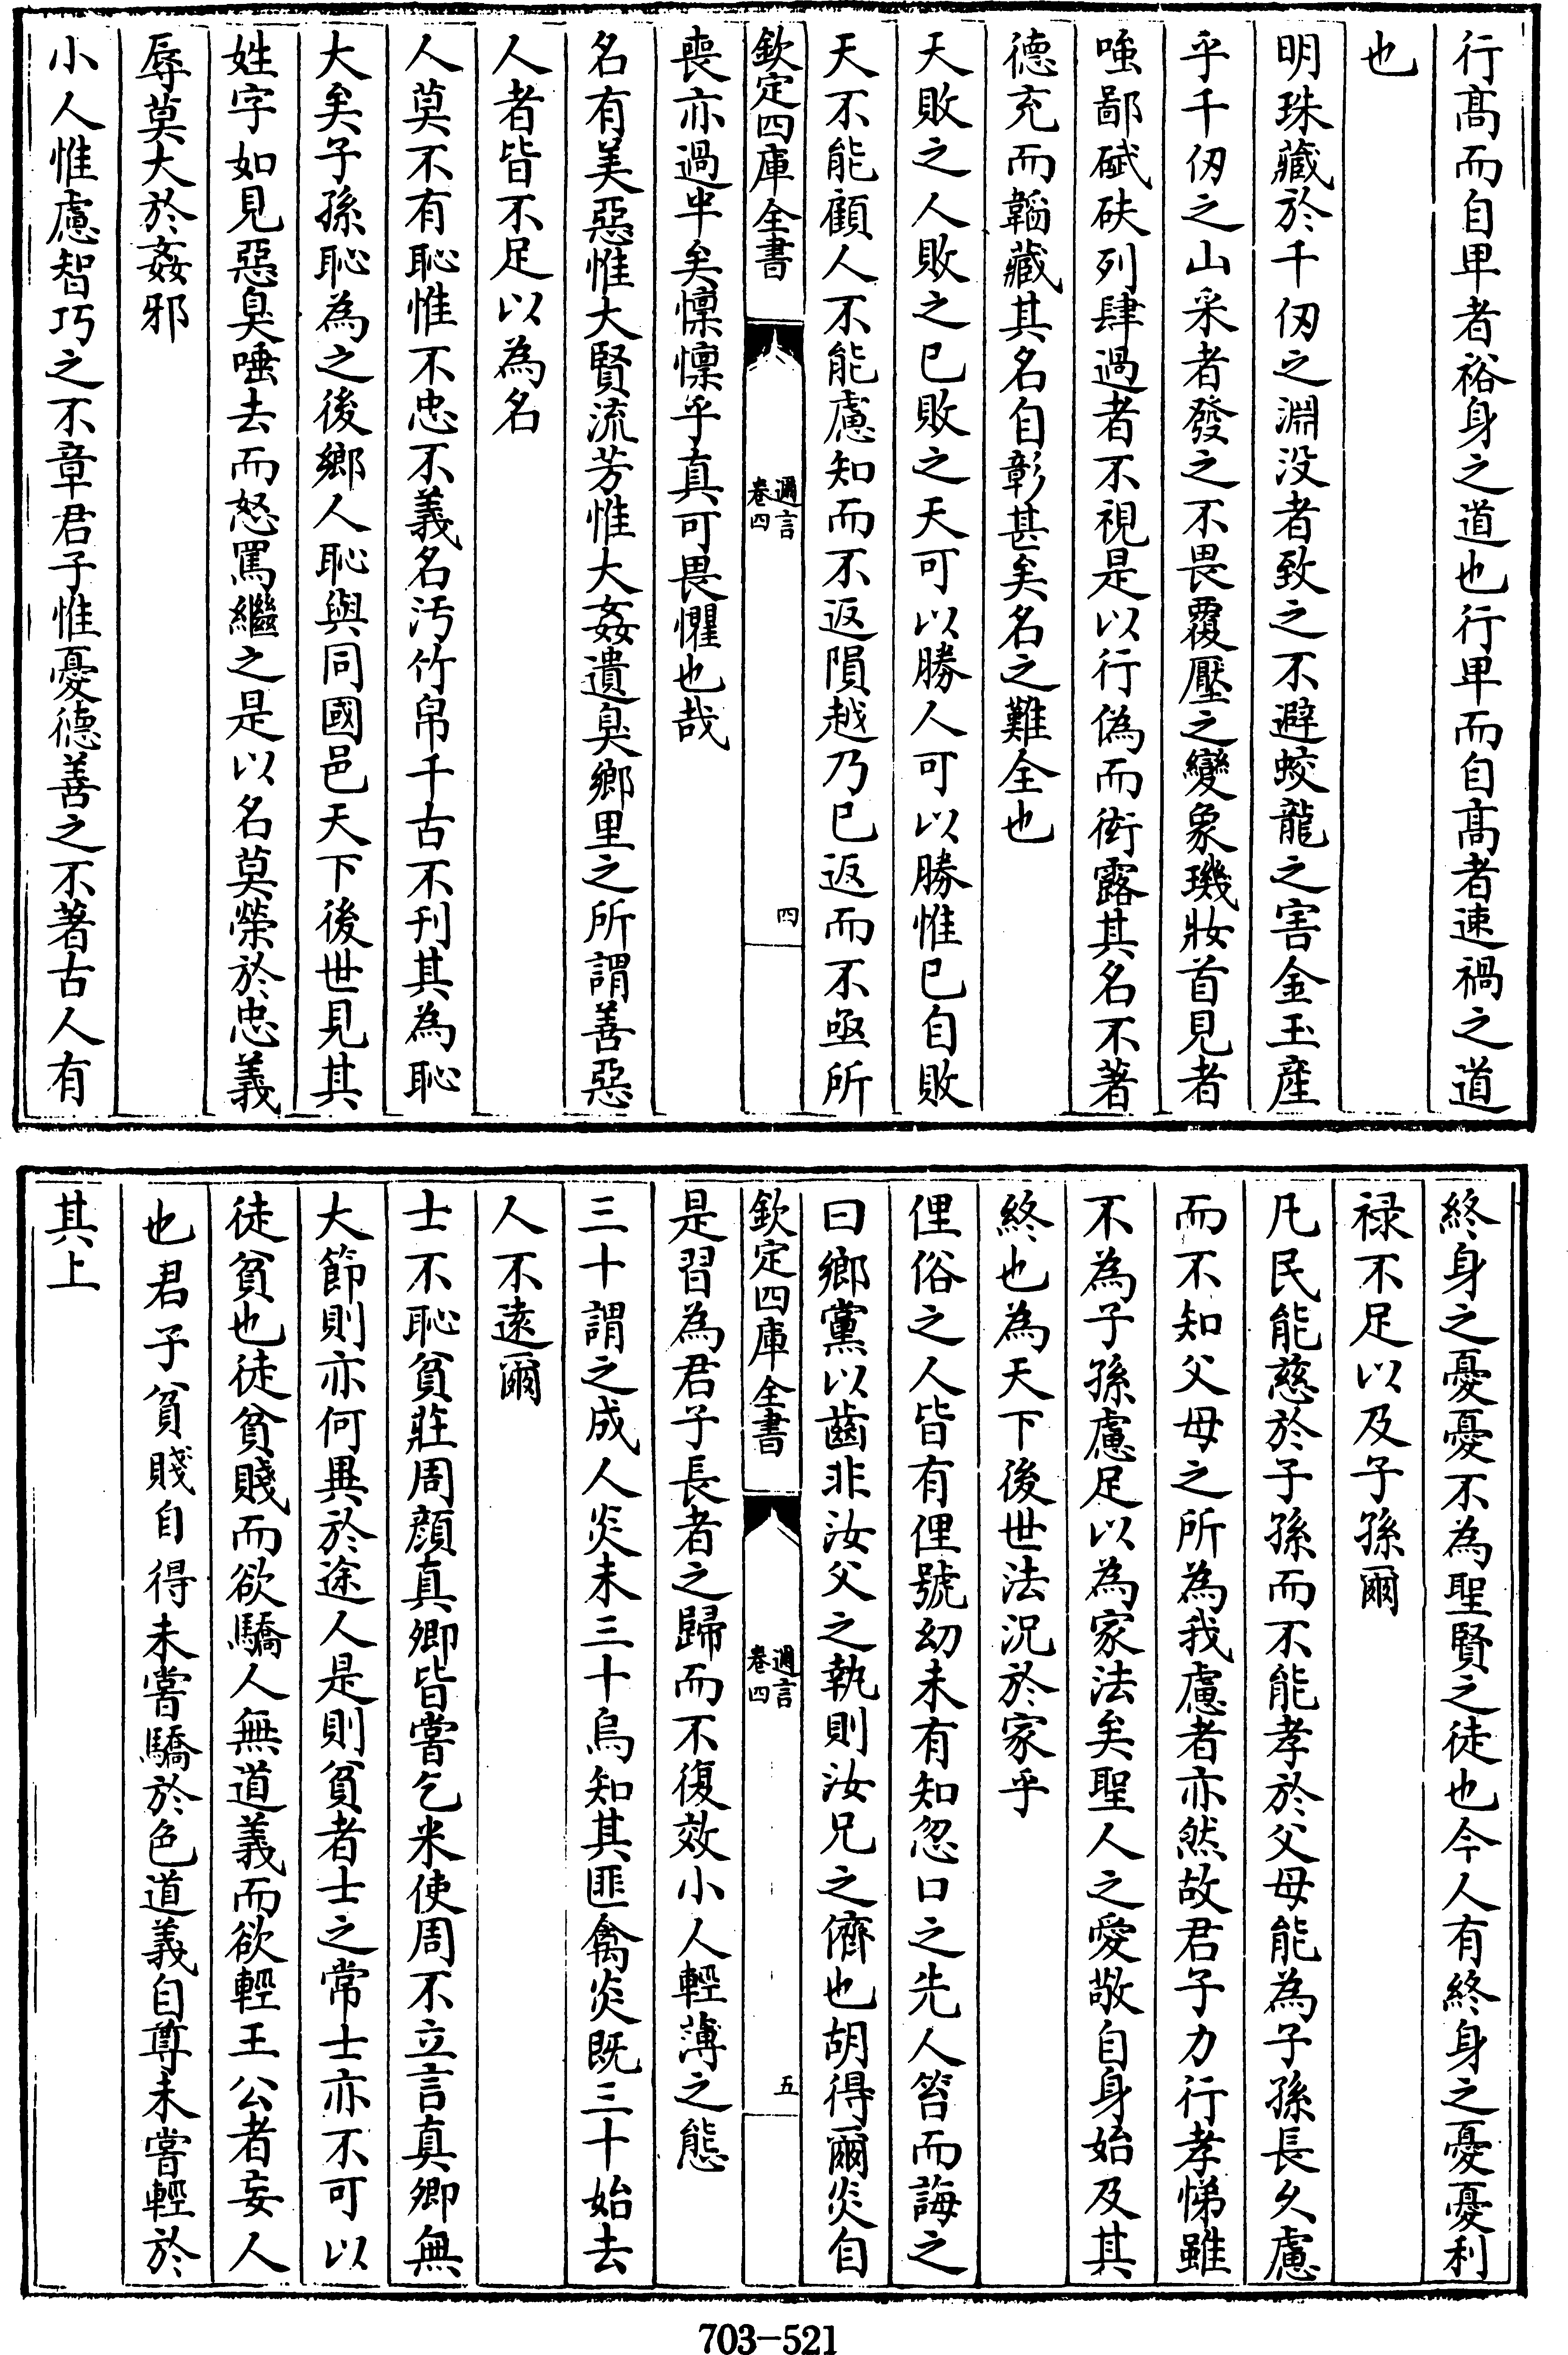 行髙而自卑者裕身之道也行卑而自髙者速禍之道
也
明珠藏於千仭之淵没者致之不避蛟龍之害金玉産
乎千仭之山采者發之不畏覆壓之變象璣妝首見者
嗤鄙碔砆列肆過者不視是以行偽而衒露其名不著
德充而韜藏其名自彰甚矣名之難全也
天敗之人敗之已敗之天可以勝人可以勝惟已自敗
天不能顧人不能慮知而不返隕越乃已返而不亟所
欽定四庫全書
邇言
卷四
四
喪亦過半矣懍懍乎真可畏懼也哉
名有美惡惟大賢流芳惟大姦遺臭鄉里之所謂善惡
人者皆不足以為名
人莫不有恥惟不忠不義名汚竹帛千古不刊其為恥
大矣子孫恥為之後鄉人恥與同國邑天下後世見其
姓字如見惡臭唾去而怒罵繼之是以名莫榮於忠義
辱莫大於姦邪
小人惟慮智巧之不章君子惟憂德善之不著古人有
終身之憂憂不為聖賢之徒也今人有終身之憂憂利
禄不足以及子孫爾
凡民能慈於子孫而不能孝於父母能為子孫長乆慮
而不知父母之所為我慮者亦然故君子力行孝悌雖
不為子孫慮足以為家法矣聖人之愛敬自身始及其
終也為天下後世法況於家乎
俚俗之人皆有俚號幼未有知忽口之先人笞而誨之
曰鄉黨以齒非汝父之執則汝兄之儕也胡得爾炎自
欽定四庫全書
邇言
卷四
五
是習為君子長者之歸而不復效小人輕薄之態
三十謂之成人炎未三十烏知其匪禽炎既三十始去
人不逺爾
士不恥貧莊周顔真卿皆嘗乞米使周不立言真卿無
大節則亦何異於途人是則貧者士之常士亦不可以
徒貧也徒貧賤而欲驕人無道義而欲輕王公者妄人
也君子貧賤自得未嘗驕於色道義自尊未嘗輕於
其上
703-521